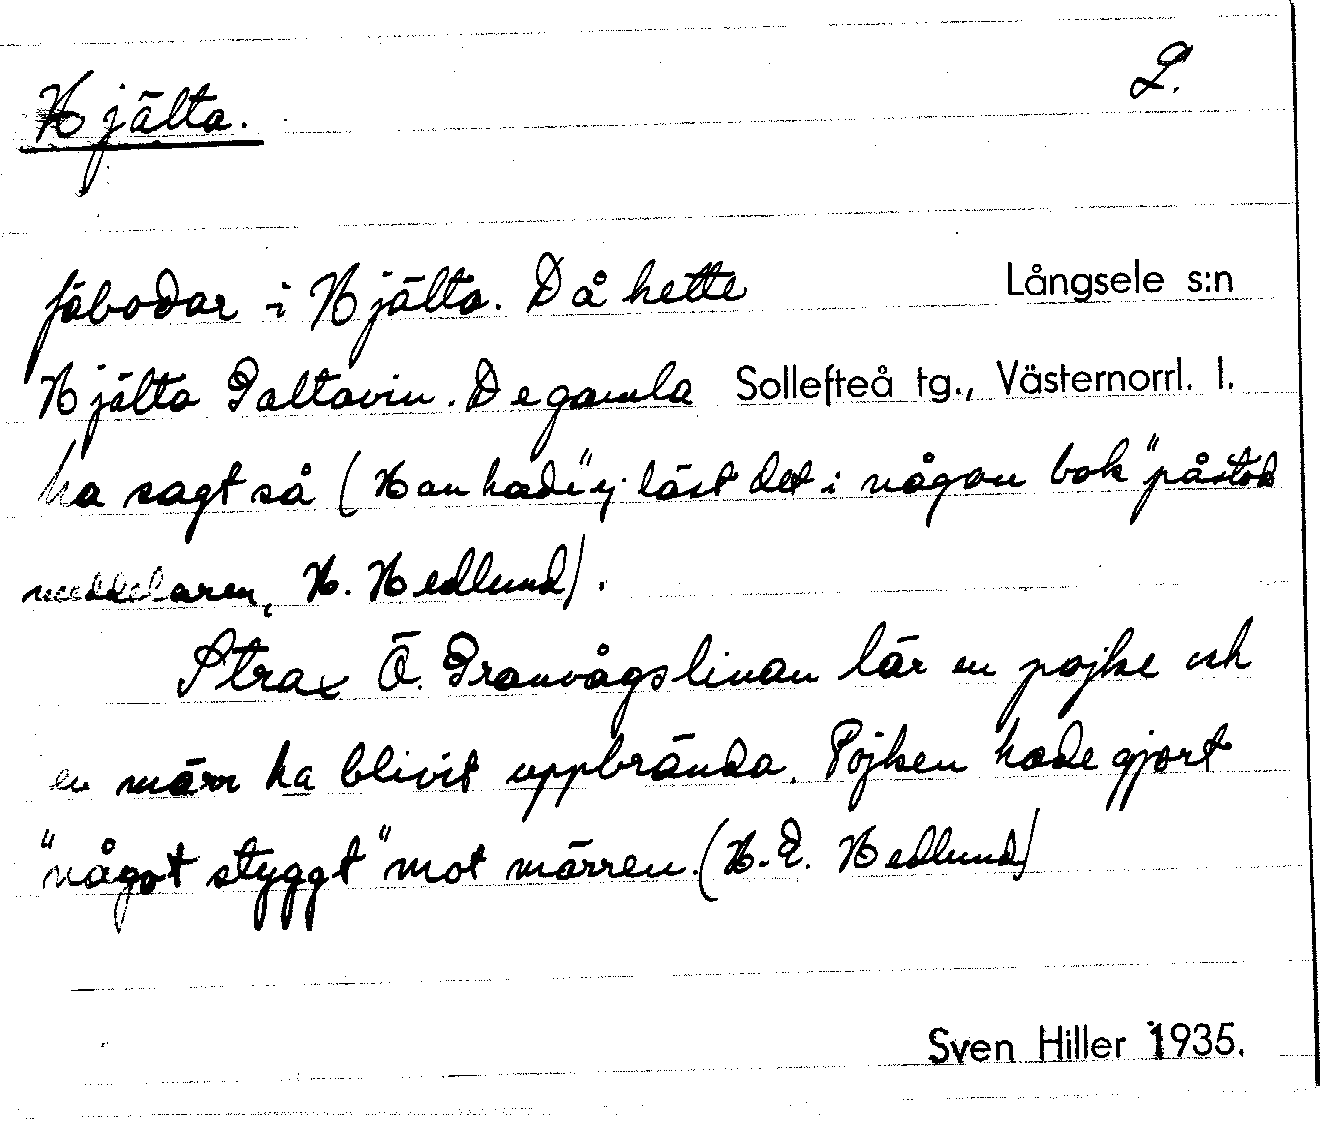 Hjälta.
2.
fäbodar i Hjälta. Då hette
Långsele s:n
Hjälta Paltavin. De gamla
Sollefteå tg., Västernorrl. l.
ha sagt så (Han hade "ej läst det i någon bok" påstod
meddelaren, H. Hedlund).
Strax Ö. Granvågslinan lär en pojke och
en märr ha blivit uppbrända. Pojken hade gjort
"något styggt" mot märren. (H. E. Hedlund)
Sven Hiller 1935.